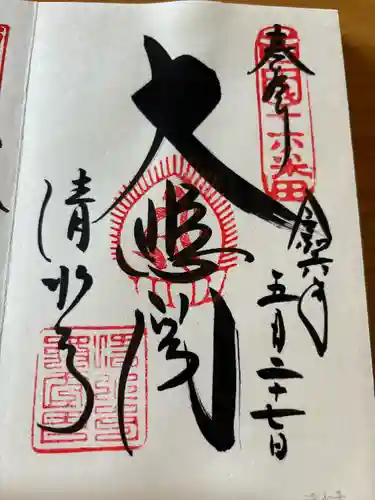 奉拝
西国十六番
令和六年
五月二十七日
大悲閣
清水寺